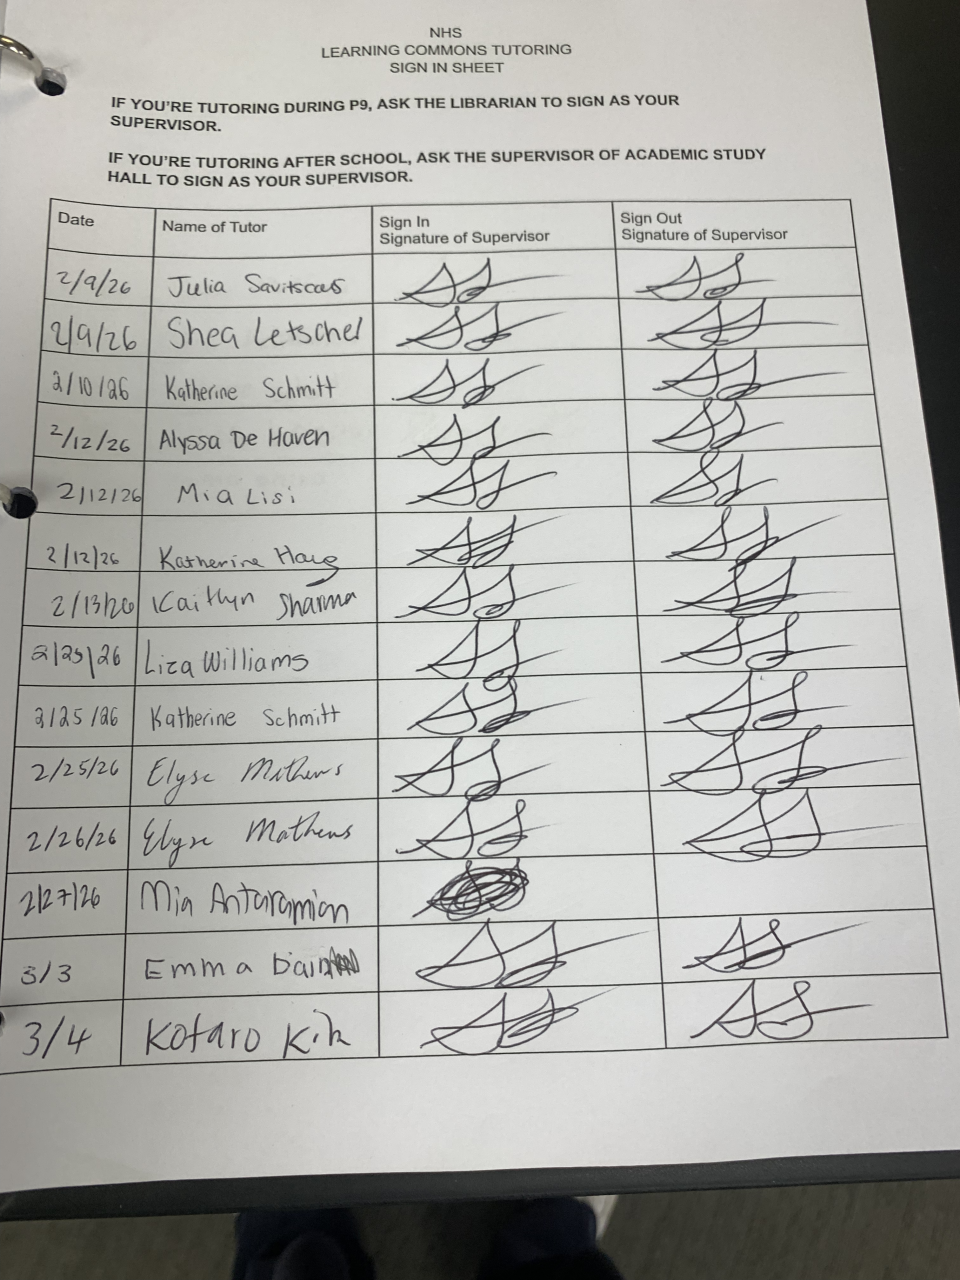 NHS
LEARNING COMMONS TUTORING
SIGN IN SHEET
IF YOU'RE TUTORING DURING P9, ASK THE LIBRARIAN TO SIGN AS YOUR
SUPERVISOR.
IF YOU'RE TUTORING AFTER SCHOOL, ASK THE SUPERVISOR OF ACADEMIC STUDY
HALL TO SIGN AS YOUR SUPERVISOR.
Date Name of Tutor Sign In Sign Out
Signature of Supervisor Signature of Supervisor
2/9/26 Julia
2/9/26 Shea Letschel
2/10/26 Katherine Schmitt
2/12/26 Alyssa De Haven
2/12/26 Mia Lisi
2/12/26 Katherine Haug
2/13/26 Kaitlyn Sharma
2/25/26 Liza Williams
2/25/26 Katherine Schmitt
2/25/26 Elyse Mathews
2/26/26 Elyse Mathews
2/27/26 Mia Antaramian
3/3 Emma
3/4 Kotaro